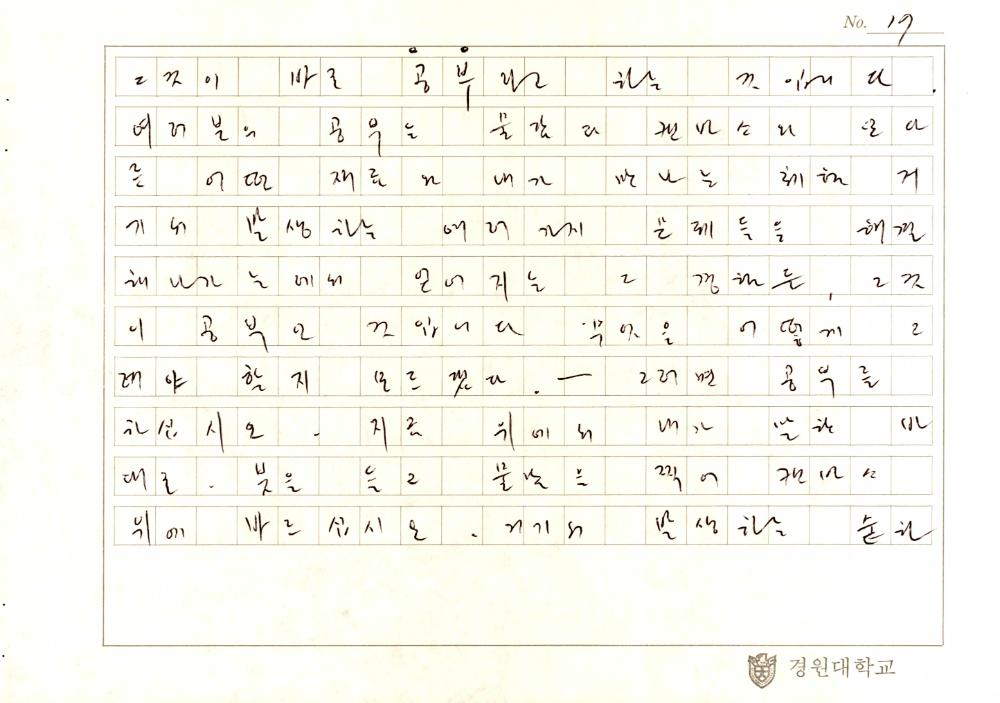 No. 17
그것이 바로 공부라고 하는 것입니다.
여러분의 공부는 물감과 캔바스와 또 다
른 어떤 재료와 내가 만나는 체험 거
기서 발생하는 여러가지 문제들을 해결
해 나가는 데서 얻어지는 그 경험들, 그것
이 공부인 것입니다 무엇을 어떻게 그
려야 할지 모르겠다. — 그러면 공부를
하십시오. 지금 위에서 내가 말한 바
대로. 붓을 들고 물감을 찍어 캔바스
위에 바르십시오. 거기서 발생하는 순한
경원대학교